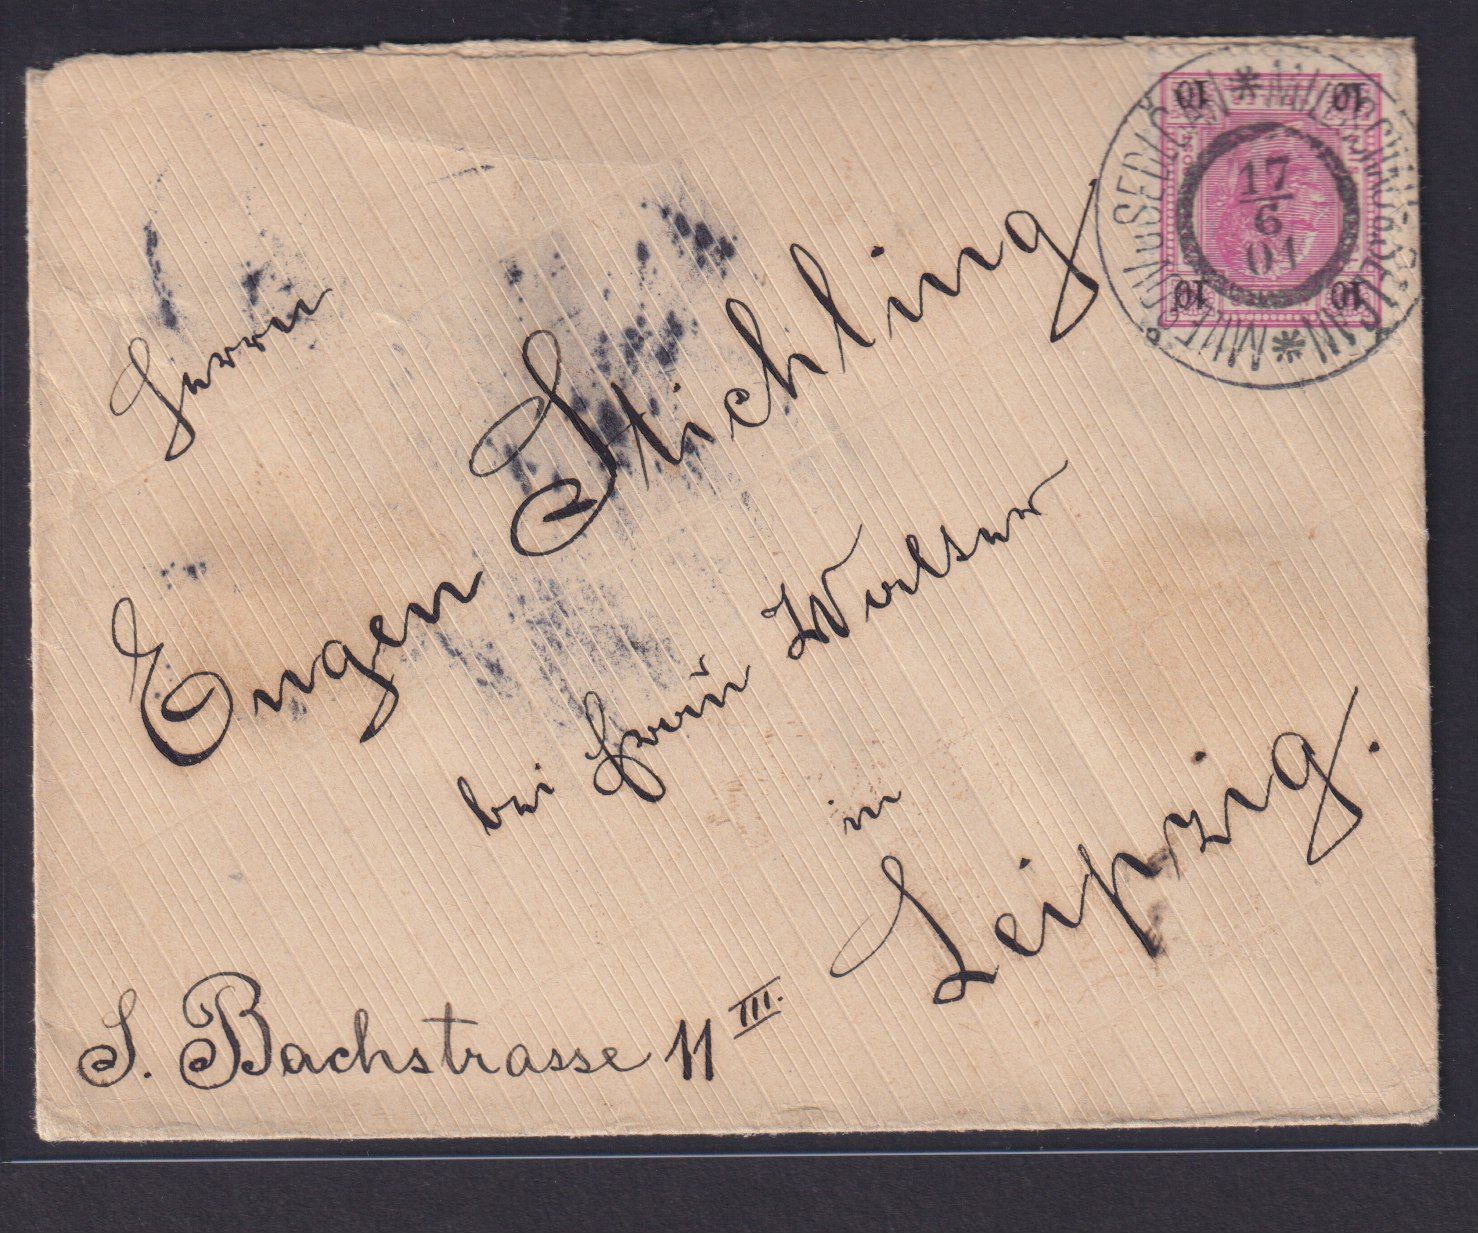 10 10
17
6
01
10 10
Herrn
Eugen Stichling
bei Frau Walser
in
Leipzig.
S. Bachstrasse 11 III.